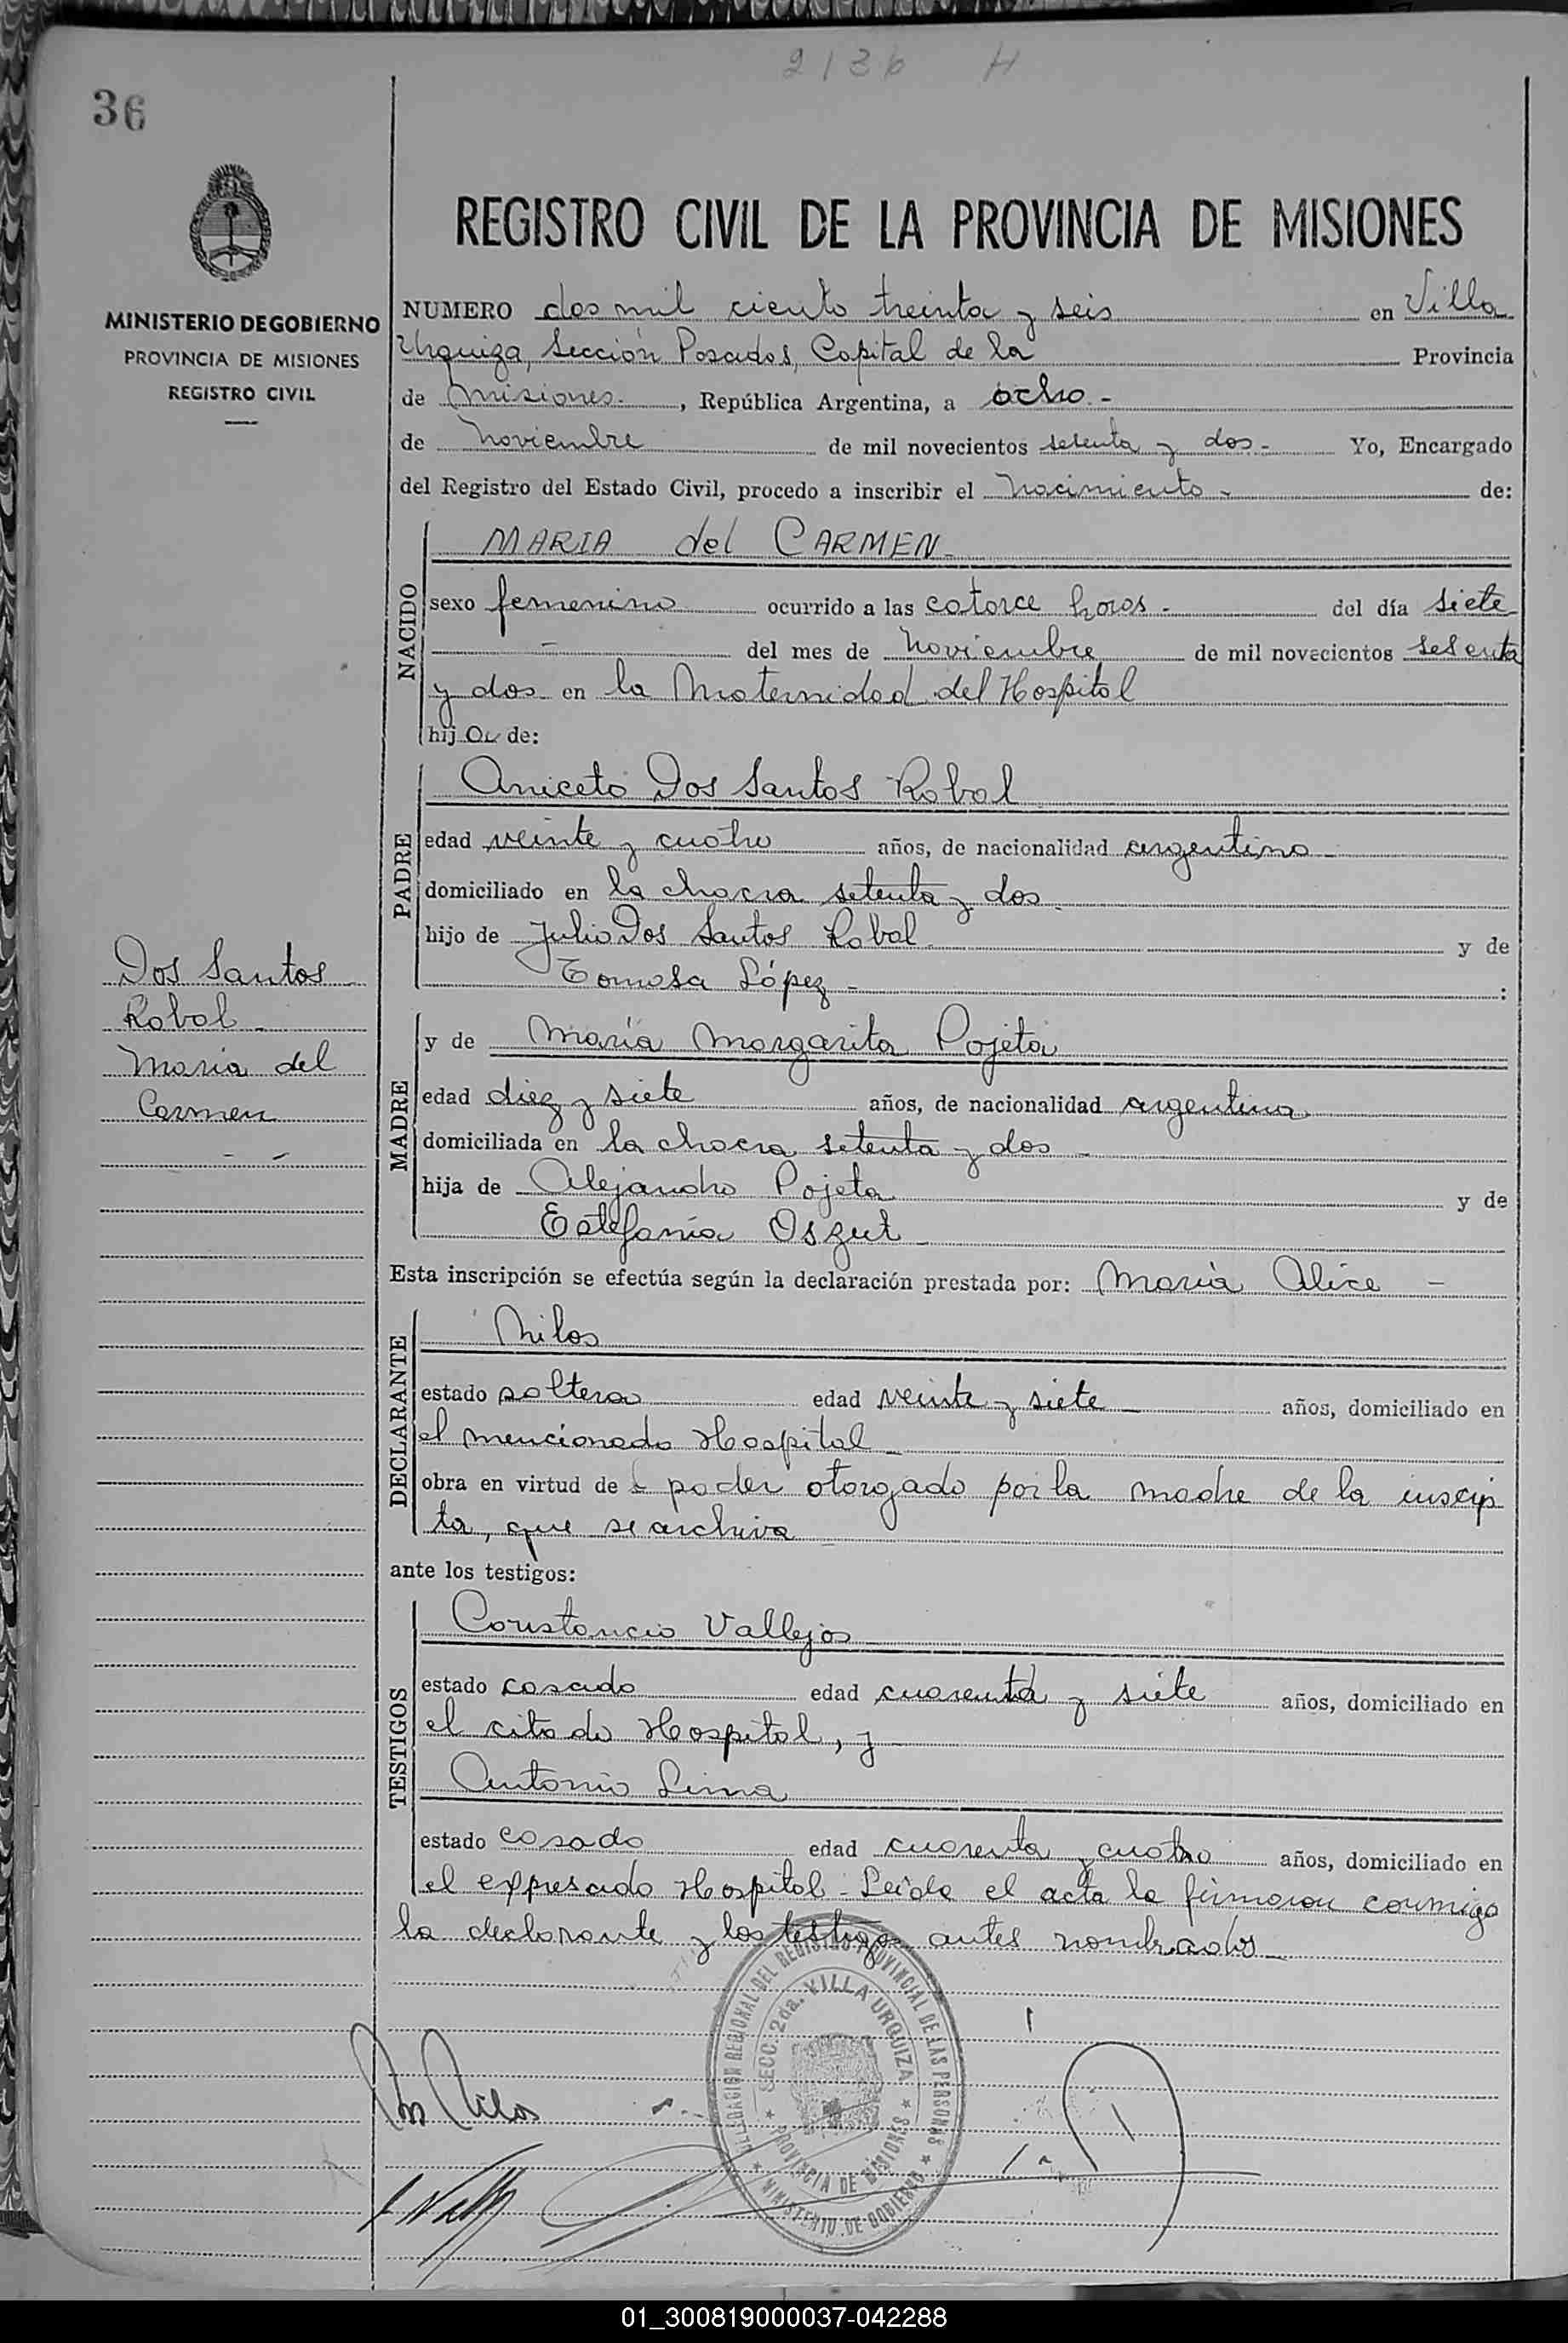 2136 H
36
REGISTRO CIVIL DE LA PROVINCIA DE MISIONES
MINISTERIO DE GOBIERNO
PROVINCIA DE MISIONES
REGISTRO CIVIL
NUMERO dos mil ciento treinta y seis en Villa
Urquiza, Sección Posadas, Capital de la Provincia
de Misiones.-, República Argentina, a ocho.-
de noviembre de mil novecientos setenta y dos.- Yo, Encargado
del Registro del Estado Civil, procedo a inscribir el nacimiento- de:
NACIDO
MARIA del CARMEN-
sexo femenino ocurrido a las catorce horas.- del día siete
- del mes de noviembre de mil novecientos setenta
y dos en la Maternidad del Hospital
hija de:
PADRE
Aniceto Dos Santos Rabal
edad veinte y cuatro años, de nacionalidad argentino-
domiciliado en la chacra setenta y dos.
hijo de Julio Dos Santos Rabal y de
Tomasa López- :
Dos Santos
Rabal-
María del
Carmen
- -
MADRE
y de María Margarita Pojeta
edad diez y siete años, de nacionalidad argentina
domiciliada en la chacra setenta y dos -
hija de Alejandro Pojeta y de
Estefanía Oszut-
Esta inscripción se efectúa según la declaración prestada por: María Alice -
DECLARANTE
Milos
estado soltera edad veinte y siete- años, domiciliado en
el mencionado Hospital-
obra en virtud de poder otorgado por la madre de la inscrip
ta, que se archiva
ante los testigos:
TESTIGOS
Constancio Vallejos
estado casado edad cuarenta y siete años, domiciliado en
el citado Hospital, y
Antonio Lima
estado casado edad cuarenta y cuatro años, domiciliado en
el expresado Hospital- Leída el acta la firmaron conmigo
la declarante y los testigos antes nombrados-
DELEGACION REGIONAL DEL REGISTRO PROVINCIAL DE LAS PERSONAS
SECC. 2da. VILLA URQUIZA
PROVINCIA DE MISIONES
MINISTERIO DE GOBIERNO
01_300819000037-042288